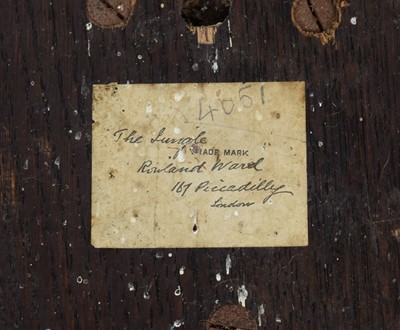 4051
The Jungle
TRADE MARK
Rowland Ward
167 Piccadilly
London